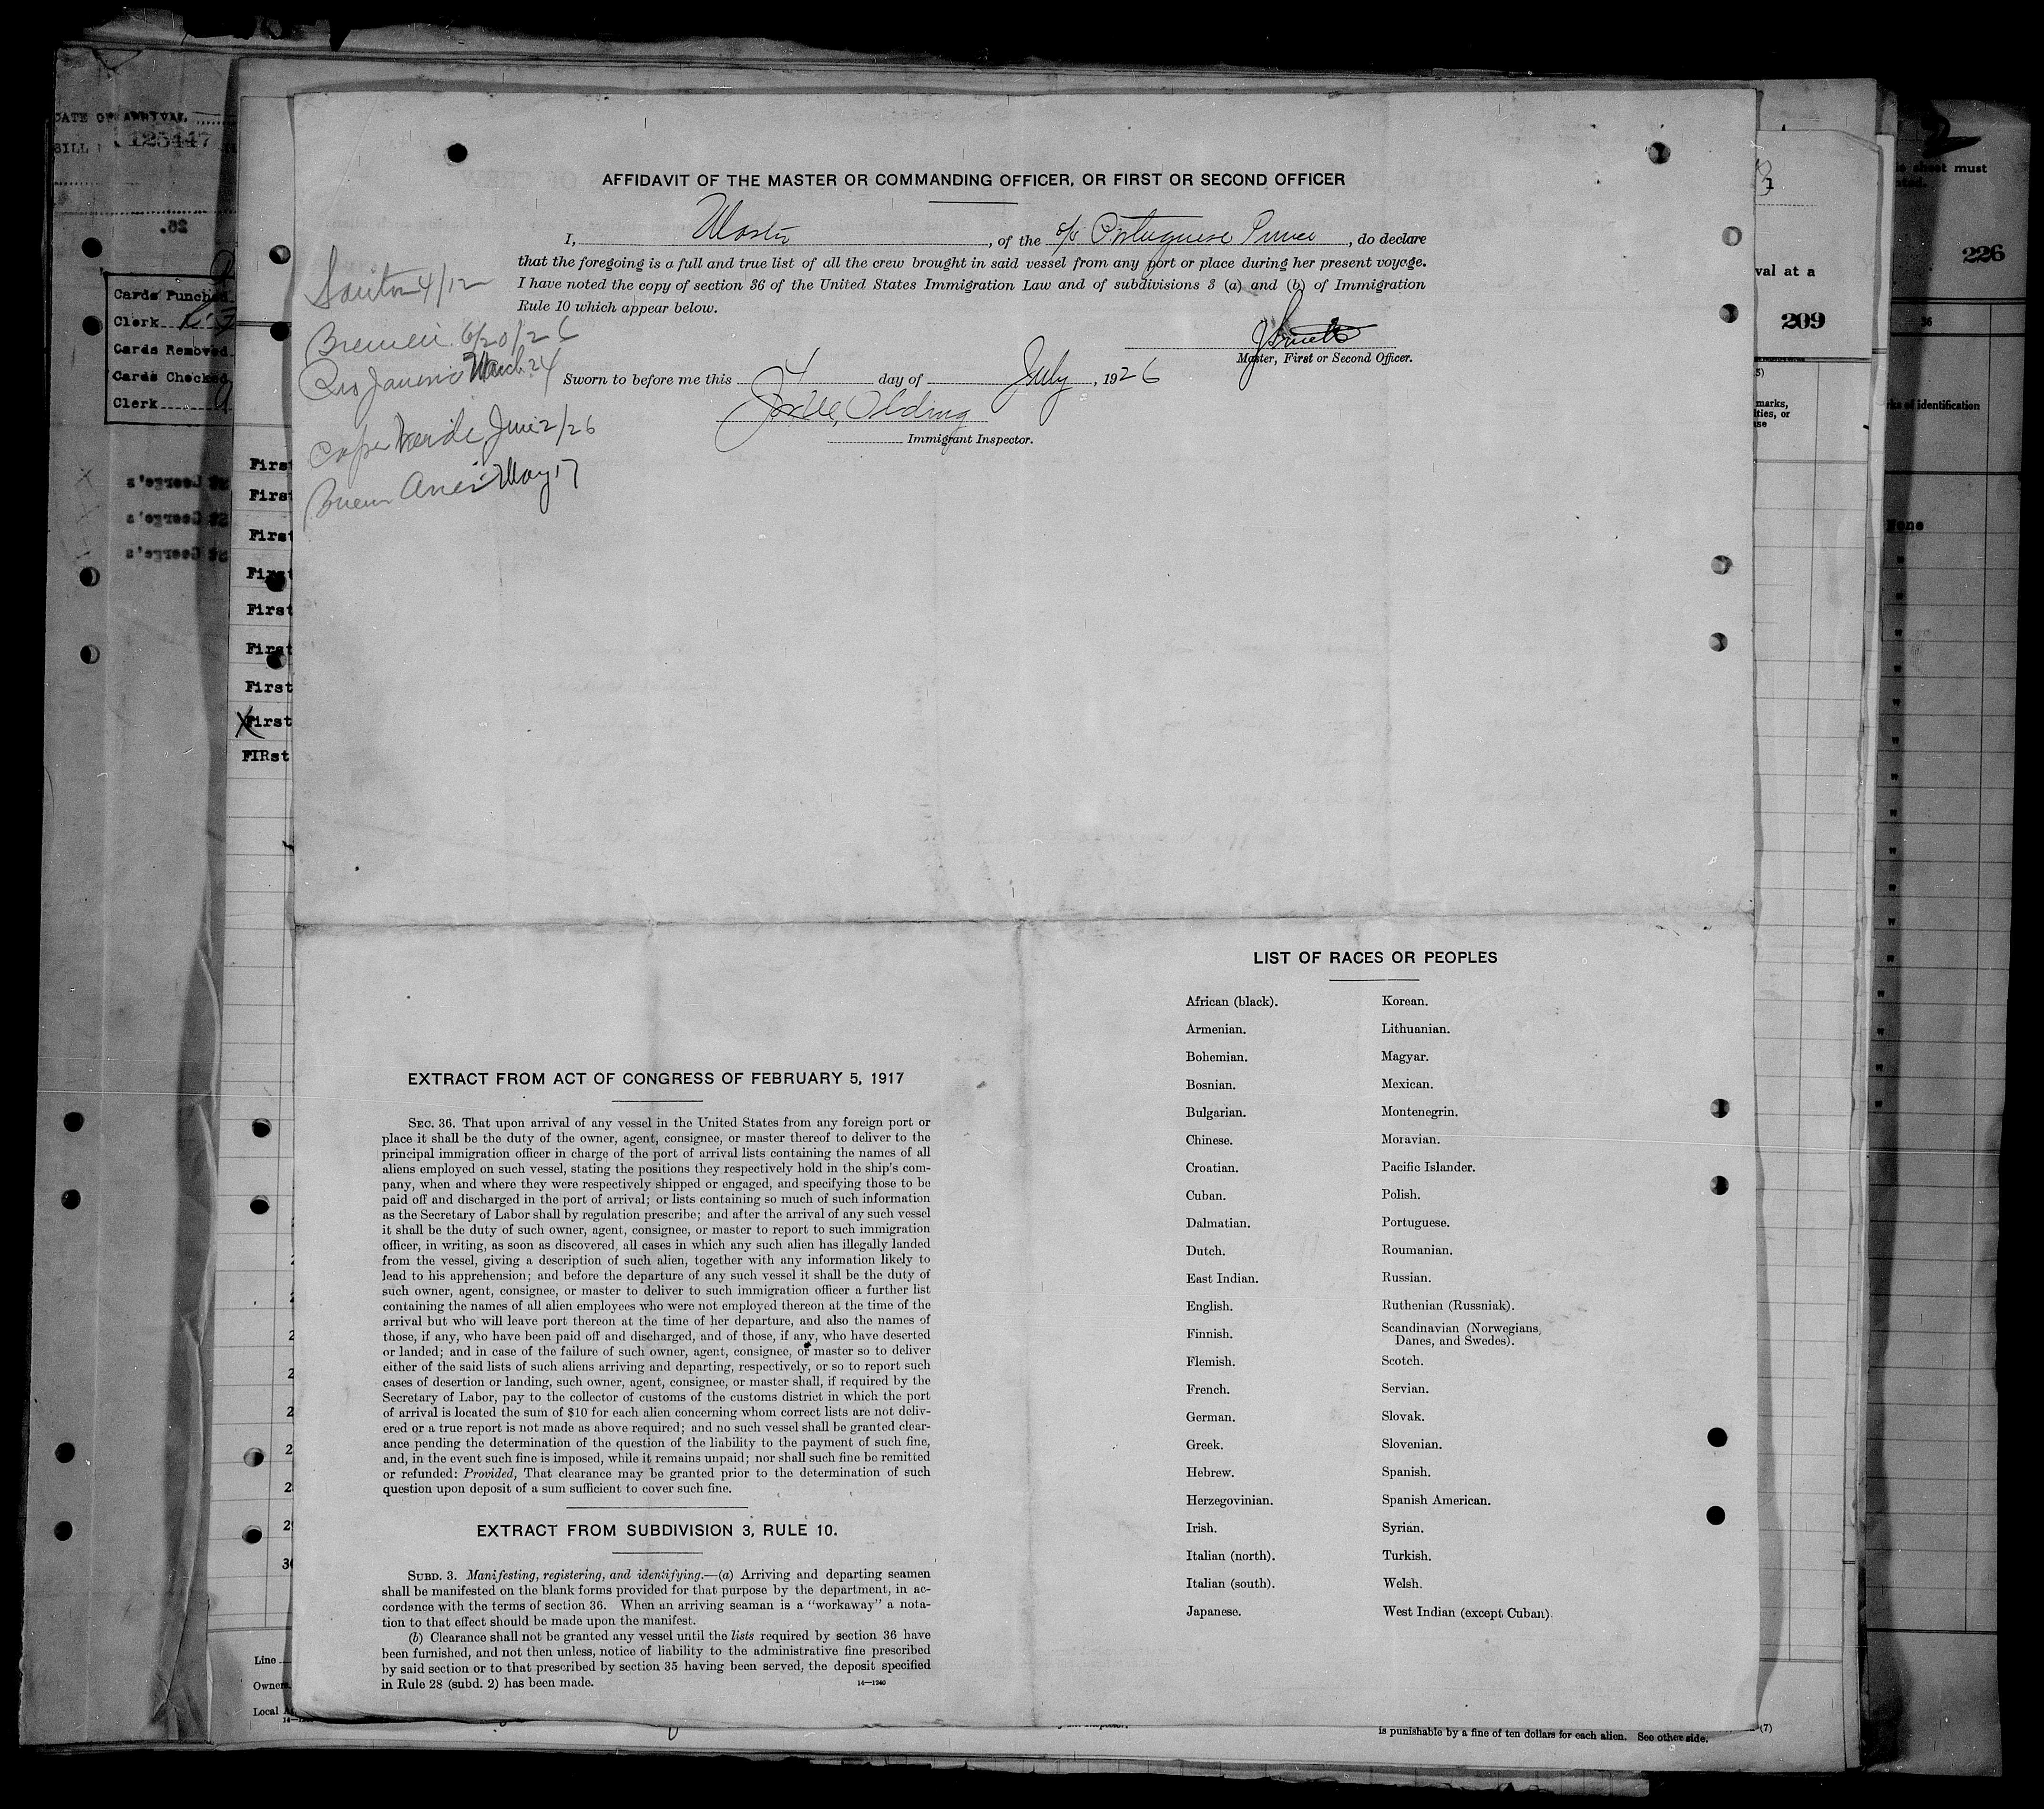 DATE OF ARRIVAL
125447
26.
Cards Punched
Clerk
Cards Removed
Cards Checked
Clerk
St George's
St George's
St George's
First
First
First
First
First
First
First
First
FIRst
AFFIDAVIT OF THE MASTER OR COMMANDING OFFICER, OR FIRST OR SECOND OFFICER
I, Master, of the s/s Portuguese Prince, do declare
that the foregoing is a full and true list of all the crew brought in said vessel from any port or place during her present voyage.
I have noted the copy of section 36 of the United States Immigration Law and of subdivisions 3 (a) and (b) of Immigration
Rule 10 which appear below.
Master, First or Second Officer.
Sworn to before me this 4 day of July, 1926
Olding
Immigrant Inspector.
Santos 4/12
Bremen 6/20/26
Rio Janeiro March 24
Cape Verde June 2/26
Buenos Aires May 17
EXTRACT FROM ACT OF CONGRESS OF FEBRUARY 5, 1917
SEC. 36. That upon arrival of any vessel in the United States from any foreign port or
place it shall be the duty of the owner, agent, consignee, or master thereof to deliver to the
principal immigration officer in charge of the port of arrival lists containing the names of all
aliens employed on such vessel, stating the positions they respectively hold in the ship's com-
pany, when and where they were respectively shipped or engaged, and specifying those to be
paid off and discharged in the port of arrival; or lists containing so much of such information
as the Secretary of Labor shall by regulation prescribe; and after the arrival of any such vessel
it shall be the duty of such owner, agent, consignee, or master to report to such immigration
officer, in writing, as soon as discovered, all cases in which any such alien has illegally landed
from the vessel, giving a description of such alien, together with any information likely to
lead to his apprehension; and before the departure of any such vessel it shall be the duty of
such owner, agent, consignee, or master to deliver to such immigration officer a further list
containing the names of all alien employees who were not employed thereon at the time of the
arrival but who will leave port thereon at the time of her departure, and also the names of
those, if any, who have been paid off and discharged, and of those, if any, who have deserted
or landed; and in case of the failure of such owner, agent, consignee, or master so to deliver
either of the said lists of such aliens arriving and departing, respectively, or so to report such
cases of desertion or landing, such owner, agent, consignee, or master shall, if required by the
Secretary of Labor, pay to the collector of customs of the customs district in which the port
of arrival is located the sum of $10 for each alien concerning whom correct lists are not deliv-
ered or a true report is not made as above required; and no such vessel shall be granted clear-
ance pending the determination of the question of the liability to the payment of such fine,
and, in the event such fine is imposed, while it remains unpaid; nor shall such fine be remitted
or refunded: Provided, That clearance may be granted prior to the determination of such
question upon deposit of a sum sufficient to cover such fine.
EXTRACT FROM SUBDIVISION 3, RULE 10.
SUBD. 3. Manifesting, registering, and identifying.—(a) Arriving and departing seamen
shall be manifested on the blank forms provided for that purpose by the department, in ac-
cordance with the terms of section 36. When an arriving seaman is a "workaway" a nota-
tion to that effect should be made upon the manifest.
(b) Clearance shall not be granted any vessel until the lists required by section 36 have
been furnished, and not then unless, notice of liability to the administrative fine prescribed
by said section or to that prescribed by section 35 having been served, the deposit specified
in Rule 28 (subd. 2) has been made.
14—1240
LIST OF RACES OR PEOPLES
African (black).
Armenian.
Bohemian.
Bosnian.
Bulgarian.
Chinese.
Croatian.
Cuban.
Dalmatian.
Dutch.
East Indian.
English.
Finnish.
Flemish.
French.
German.
Greek.
Hebrew.
Herzegovinian.
Irish.
Italian (north).
Italian (south).
Japanese.
Korean.
Lithuanian.
Magyar.
Mexican.
Montenegrin.
Moravian.
Pacific Islander.
Polish.
Portuguese.
Roumanian.
Russian.
Ruthenian (Russniak).
Scandinavian (Norwegians,
Danes, and Swedes).
Scotch.
Servian.
Slovak.
Slovenian.
Spanish.
Spanish American.
Syrian.
Turkish.
Welsh.
West Indian (except Cuban).
Line
Owners
Local
is punishable by a fine of ten dollars for each alien. See other side.
(7)
val at a
209
marks,
sheet must
226
36
marks of identification
None